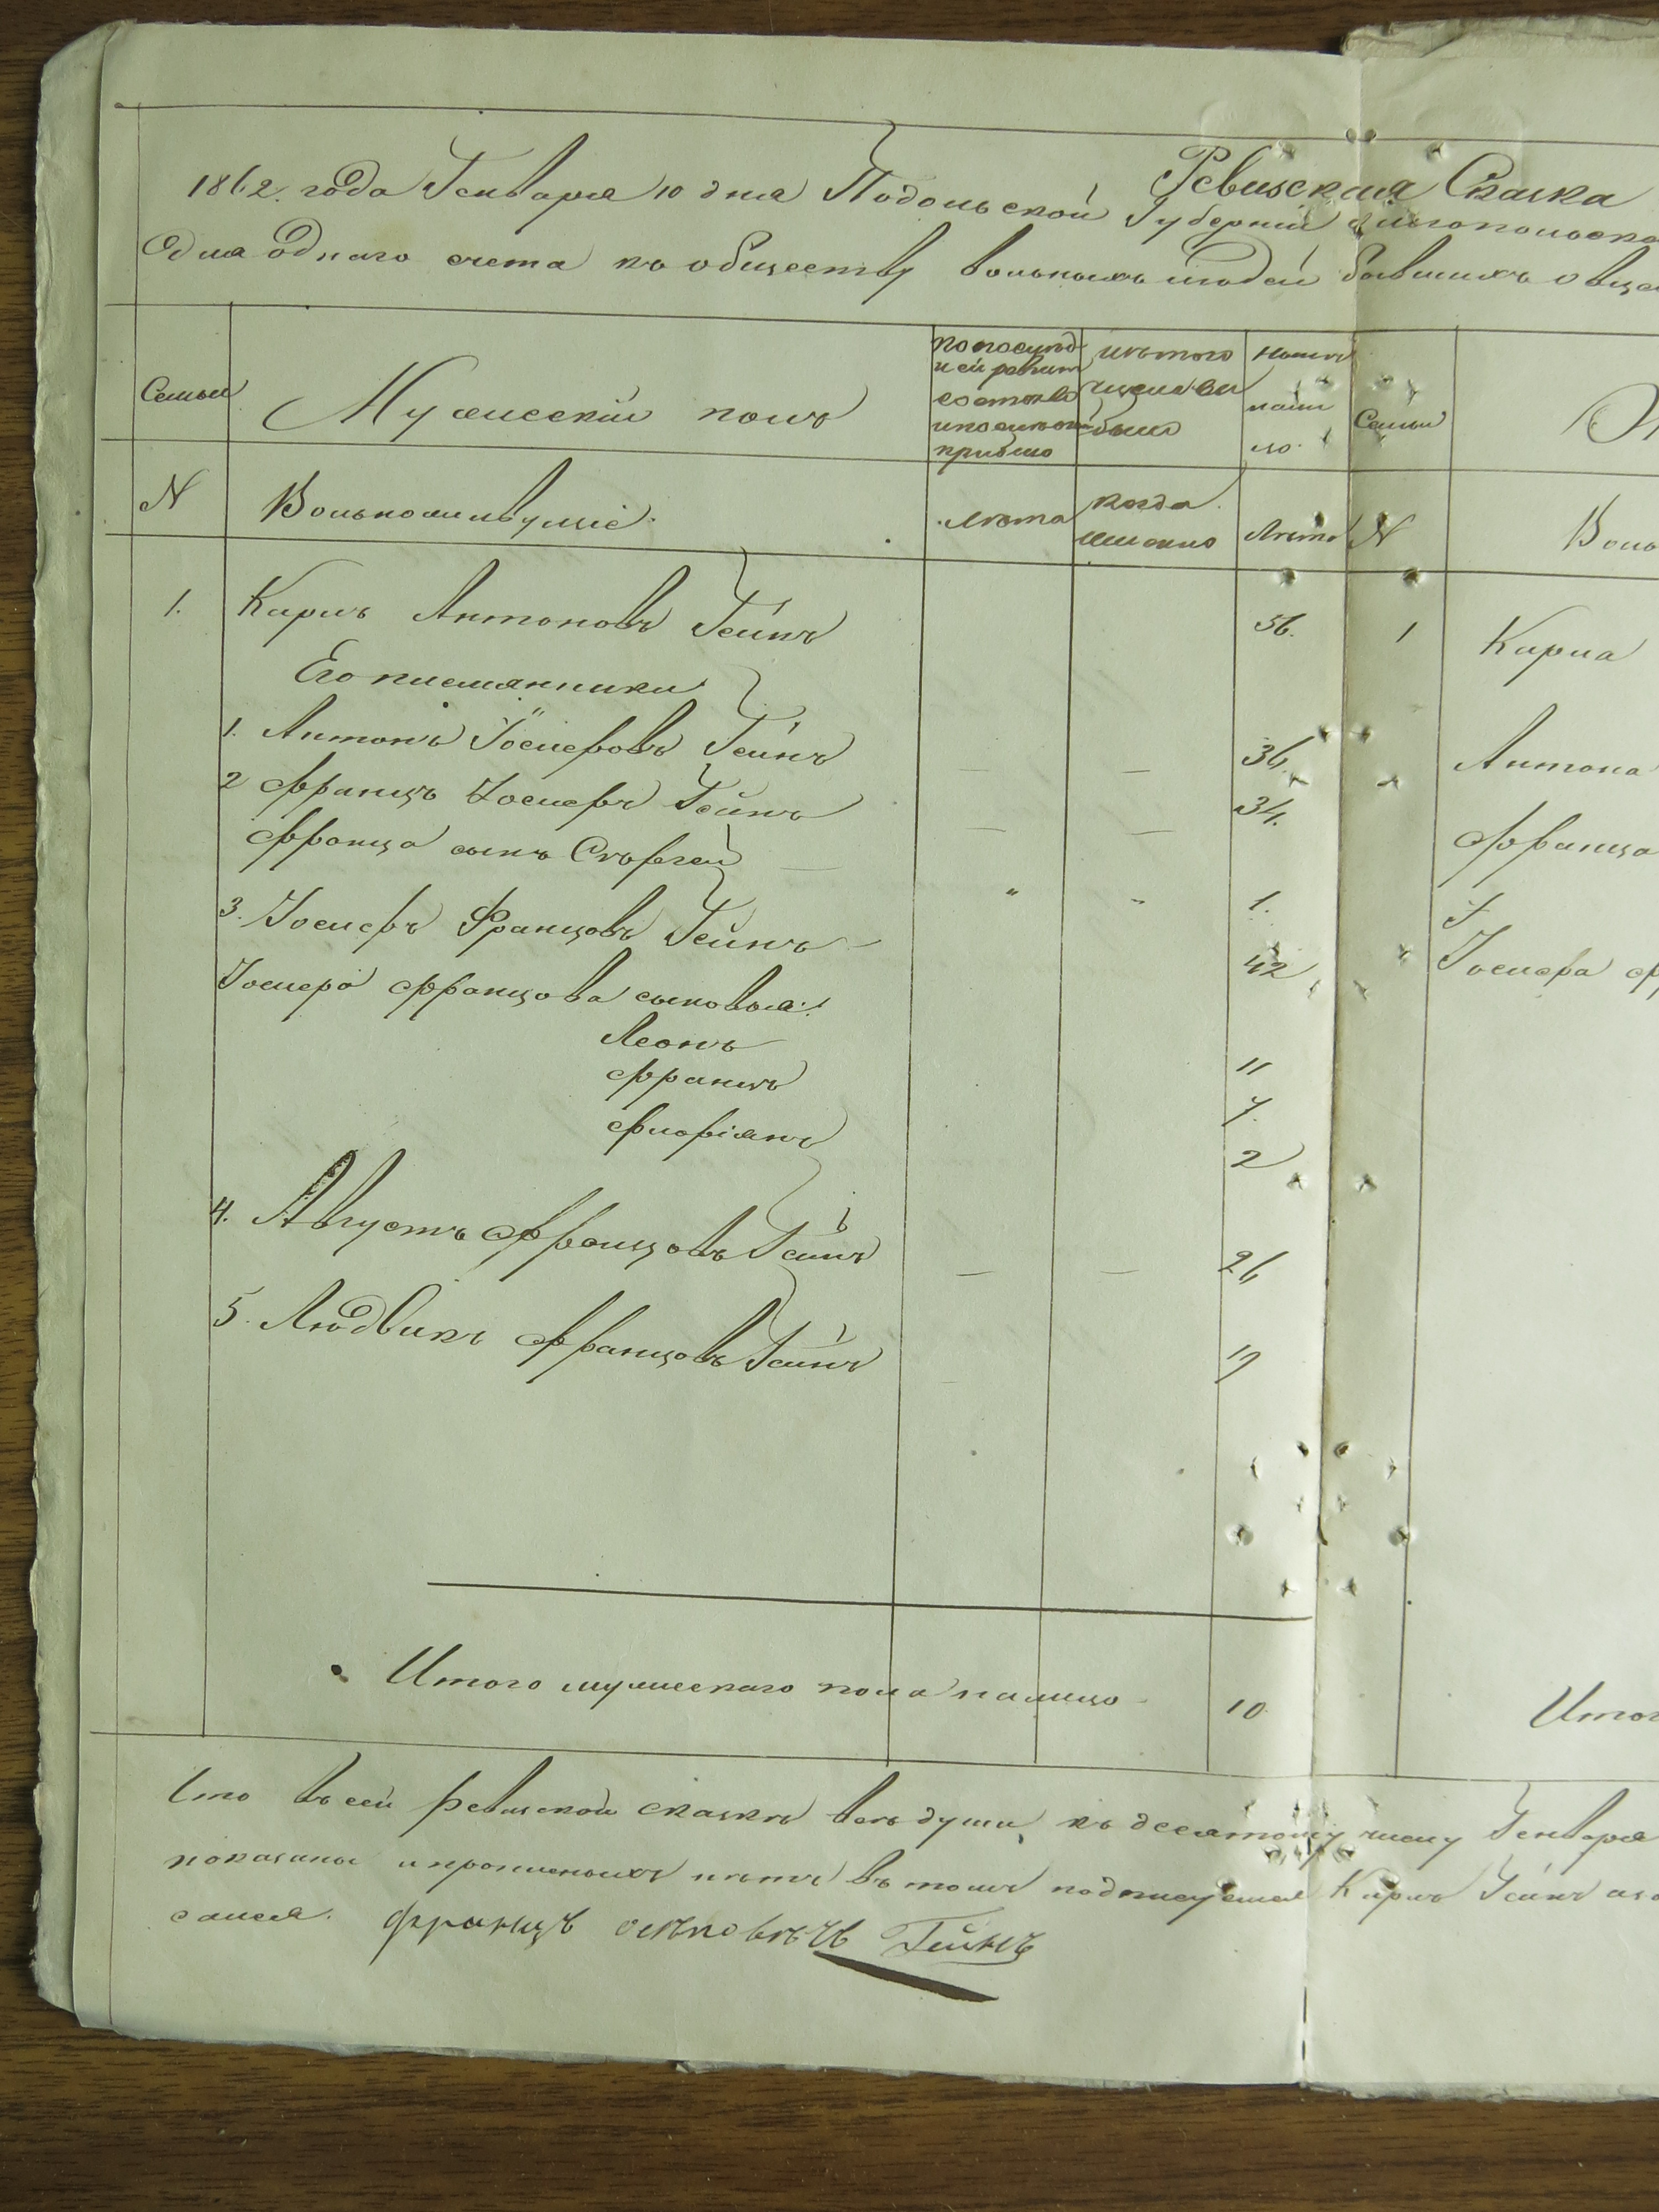 Ревизская Сказка
1862. года Генваря 10 дня Подольской Губерніи
для однаго счета къ обществу вольныхъ людей бывшихъ
Семьи
Мужескій полъ
по послѣд
ней ревизіи
состояло
и послѣ
прибыло
изъ того
числа вы
было
Нынѣ
на ли
цо.
Семьи
N
Вольноживущіе.
Лѣта
когда
именно
Лѣта
N
Воль
1. Карлъ Антоновъ Гейнъ 56. 1 Карла
Его племянники
1. Антонъ Іосифовъ Гейнъ — — 36 Антона
2 Францъ Іосифовъ Гейнъ — — 34. Франца
Франца сынъ Сергей " " 1.
3. Іосифъ Францовъ Гейнъ 42 Іосифа
Іосифа Францова сыновья:
Леонъ 11
Францъ 7
Флоріянъ 2
4. Августъ Францовъ Гейнъ — — 26
5. Людвикъ Францовъ Гейнъ 17
Итого мужескаго пола налицо 10
Итог
Что въ сей ревизской сказкѣ всѣ души къ десятому числу Генваря
показаны и прописныхъ нѣтъ въ томъ подписуемся Карлъ Гейнъ
Францъ Гейнъ